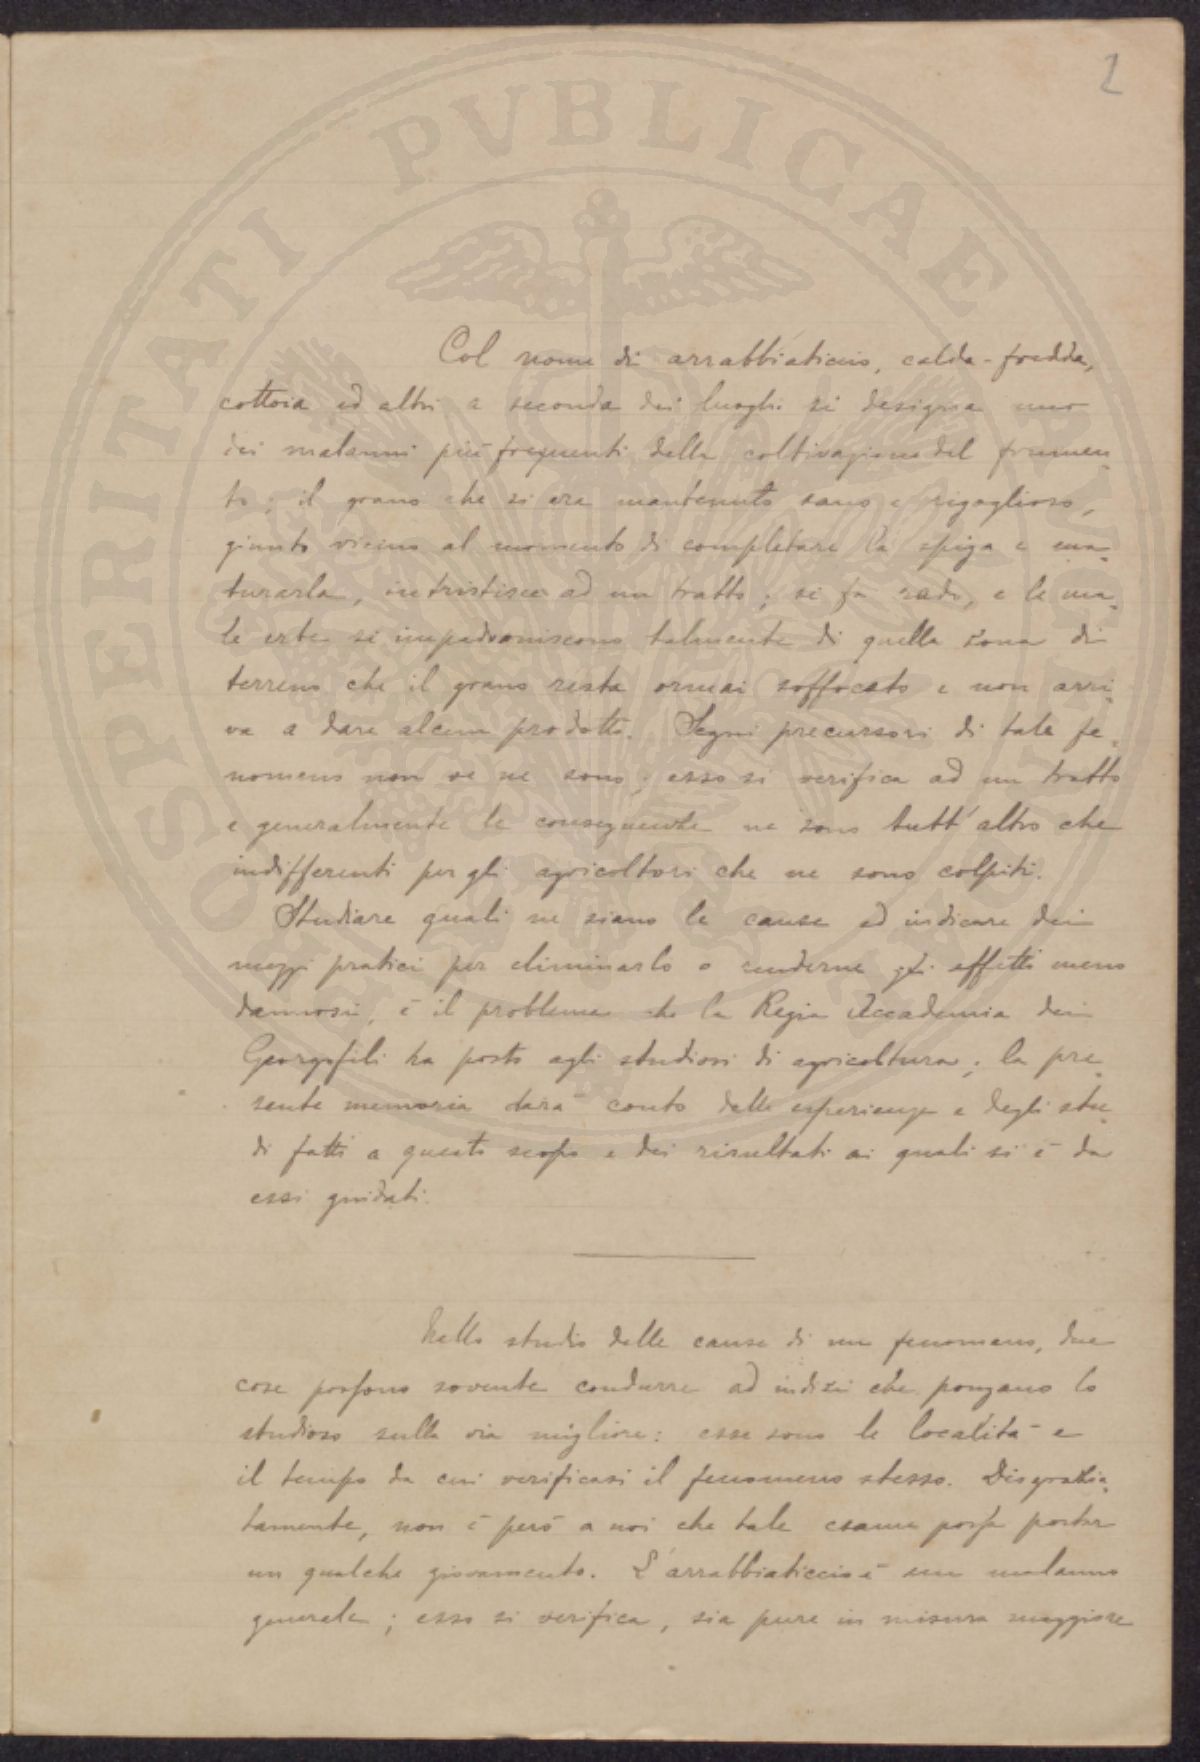 2
Col nome di arrabbiaticcio, calda-fredda,
cottoia ed altri a seconda dei luoghi si designa uno
dei malanni più frequenti della coltivazione del frumen-
to; il grano che si era mantenuto sano e rigoglioso,
giunto vicino al momento di completare la spiga e ma-
turarla, intristisce ad un tratto; si fa rado, e le ma-
le erbe si impadroniscono talmente di quella zona di
terreno che il grano resta ormai soffocato e non arri-
va a dare alcun prodotto. Segni precursori di tale fe-
nomeno non ve ne sono; esso si verifica ad un tratto
e generalmente le conseguenze ne sono tutt'altro che
indifferenti per gli agricoltori che ne sono colpiti.
Studiare quali ne siano le cause ed indicare dei
mezzi pratici per eliminarlo o renderne gli effetti meno
dannosi, è il problema che la Regia Accademia dei
Georgofili ha posto agli studiosi di agricoltura; la pre-
sente memoria darà conto delle esperienze e degli stu-
di fatti a questo scopo e dei risultati ai quali si è da
essi guidati.
Nello studio delle cause di un fenomeno, due
cose possono sovente condurre ad indizi che pongano lo
studioso sulla via migliore: esse sono le località e
il tempo da cui verificasi il fenomeno stesso. Disgrazia-
tamente, non è però a noi che tale esame possa portar
un qualche giovamento. L'arrabbiaticcio è un malanno
generale; esso si verifica, sia pure in misura maggiore
PROSPERITATI PVBLICAE AVGENDAE